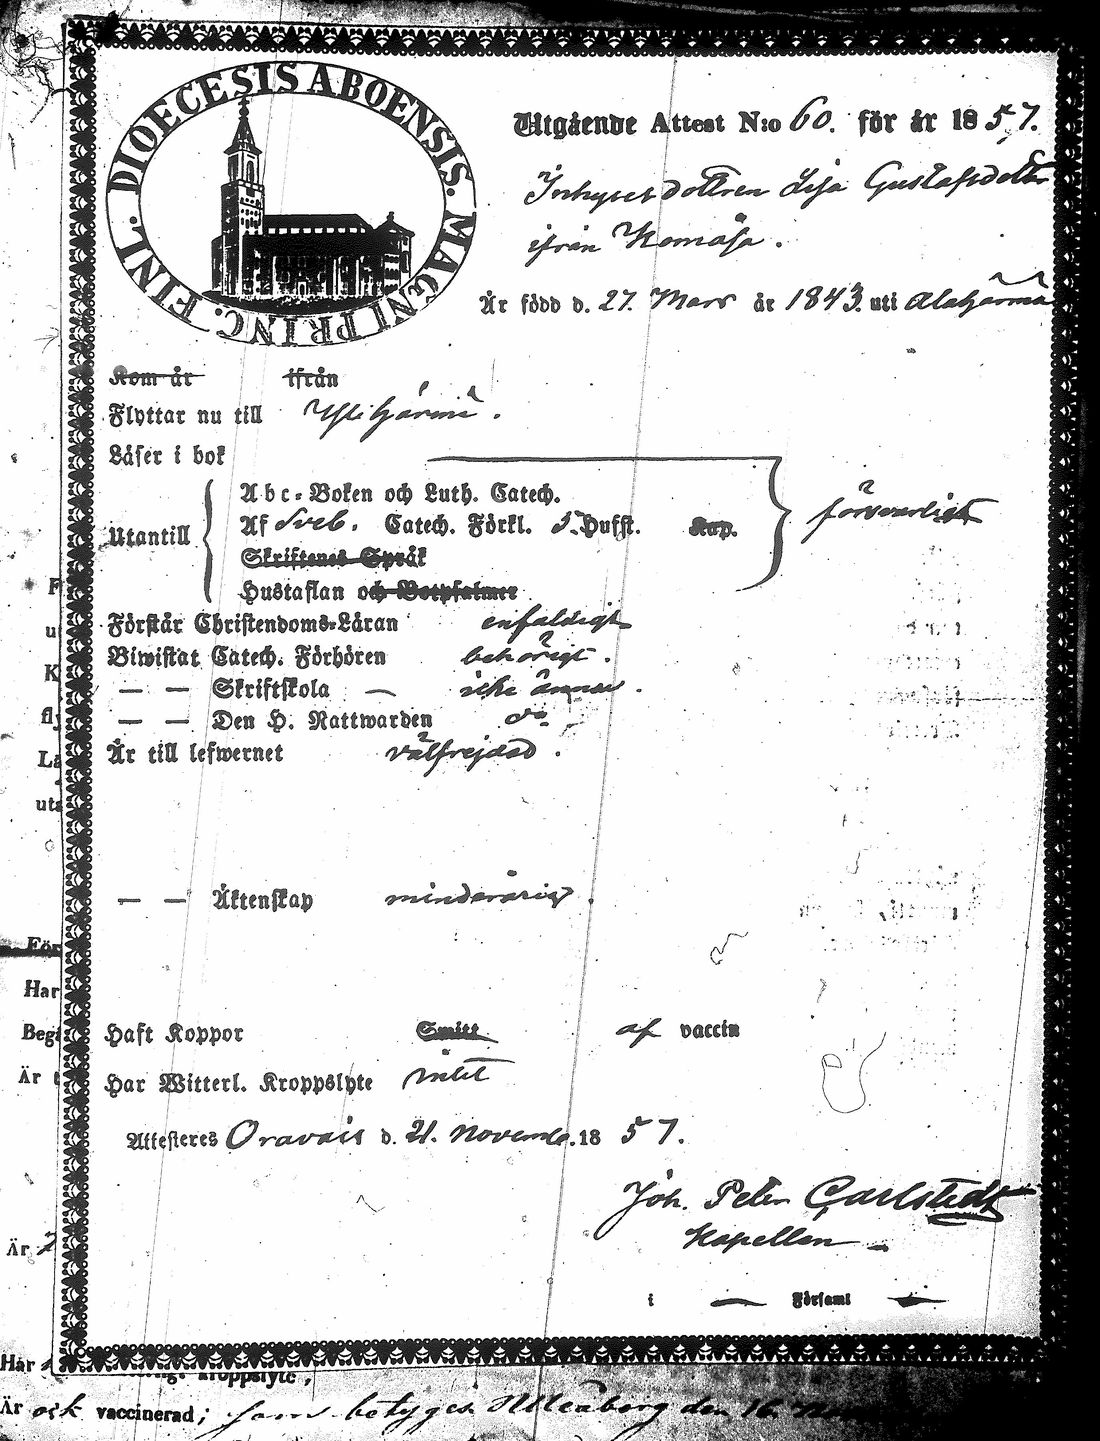 DIOECESIS ABOENSIS. MAGNI PRINC. FINL.
Utgående Attest N:o 60. för år 1857.
Inhyses dottren Lisa Gustafsdotter
ifrån Komåsa.
Är född d. 27. Mars år 1843. uti Alahärmä
Kom år ifrån
Flyttar nu till Ylihärmä.
Läser i bok
Utantill
Abc-Boken och Luth. Catech.
Af Sveb. Catech. Förkl. 5. Hufst. Kap.
försvarligt
Skriftenes Språk
Hustaflan och Botpsalmer
Förstår Christendoms-Läran enfaldigt
Biwistat Catech. Förhören behörigt.
— — Skriftskola — icke ännu.
— — Den H. Nattwarden do
Är till lefwernet välfrejdad.
— — Äktenskap minderårig.
Haft Koppor Smitt af vaccin
Har Witterl. Kroppslyte intet
Attesteres Oravais d. 21. Novemb. 1857.
Joh. Peter Carlstedt
Kapellan
i — Församl —
F
u
K
fl
Lä
uta
För
Har
Begå
Är
Är
Har
kroppslyte,
Är ock vaccinerad; som betygas Uleåborg den 16.